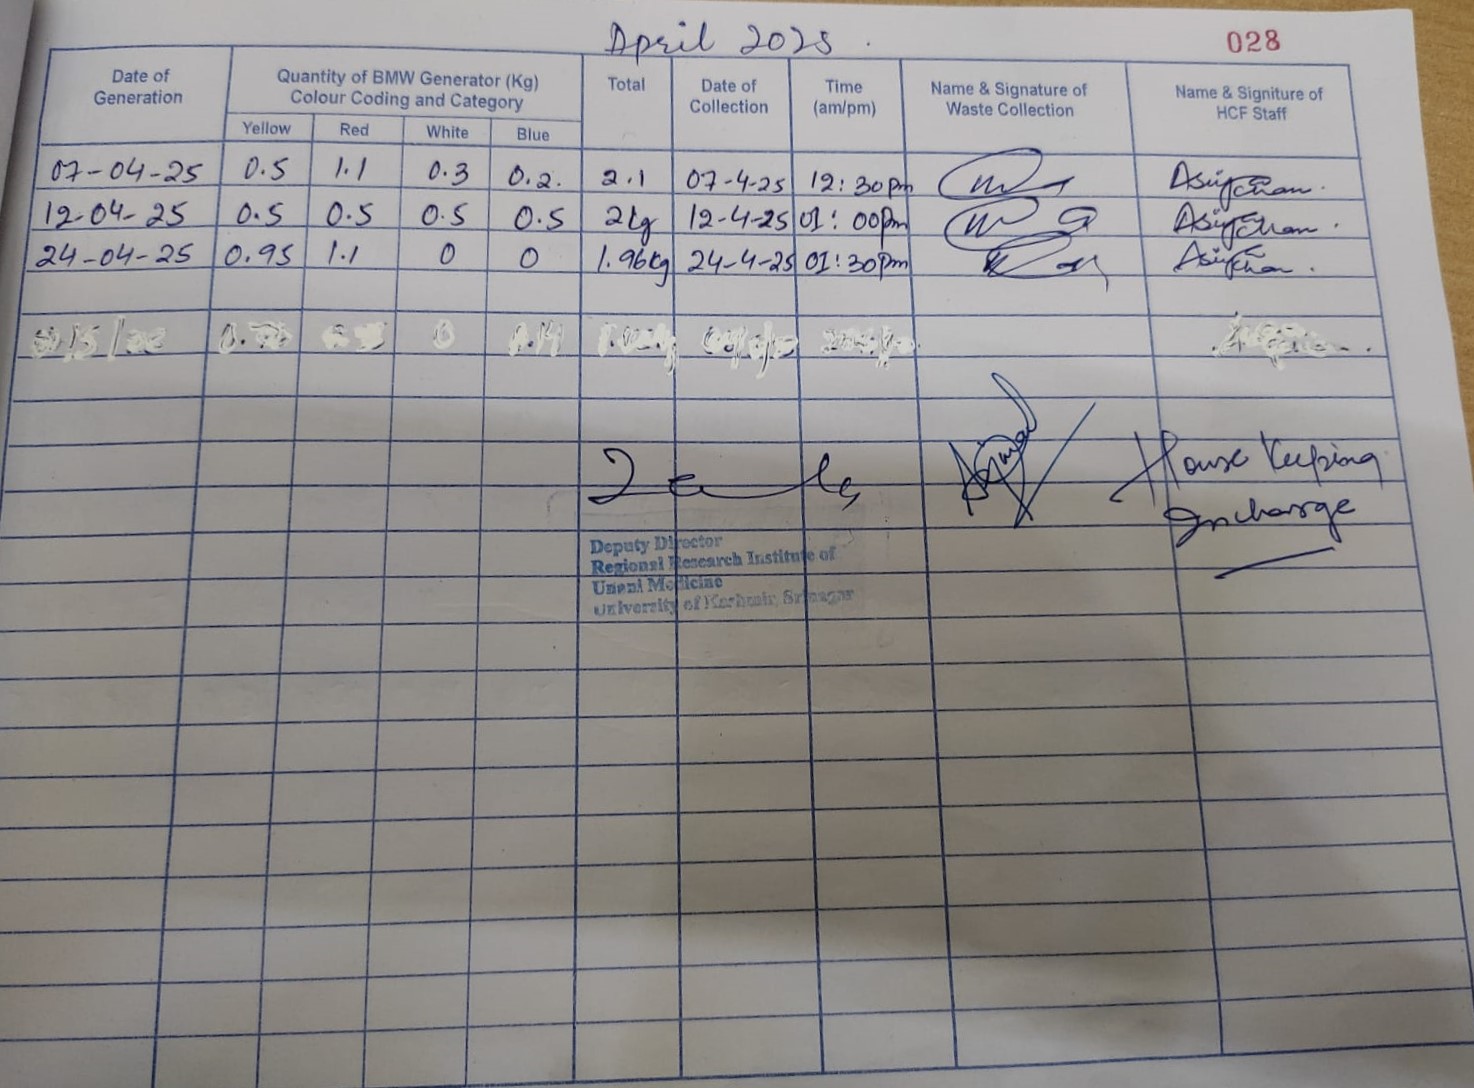 April 2025
028
Date of Generation Quantity of BMW Generator (Kg) Colour Coding and Category Total Date of Collection Time (am/pm) Name & Signature of Waste Collection Name & Signiture of HCF Staff
Yellow Red White Blue
07-04-25 0.5 1.1 0.3 0.2. 2.1 07-4-25 12:30pm
12-04-25 0.5 0.5 0.5 0.5 2kg 12-4-25 01:00pm
24-04-25 0.95 1.1 0 0 1.96kg 24-4-25 01:30pm
House Keeping
Incharge
Deputy Director
Regional Research Institute of
Unani Medicine
University of Kashmir, Srinagar